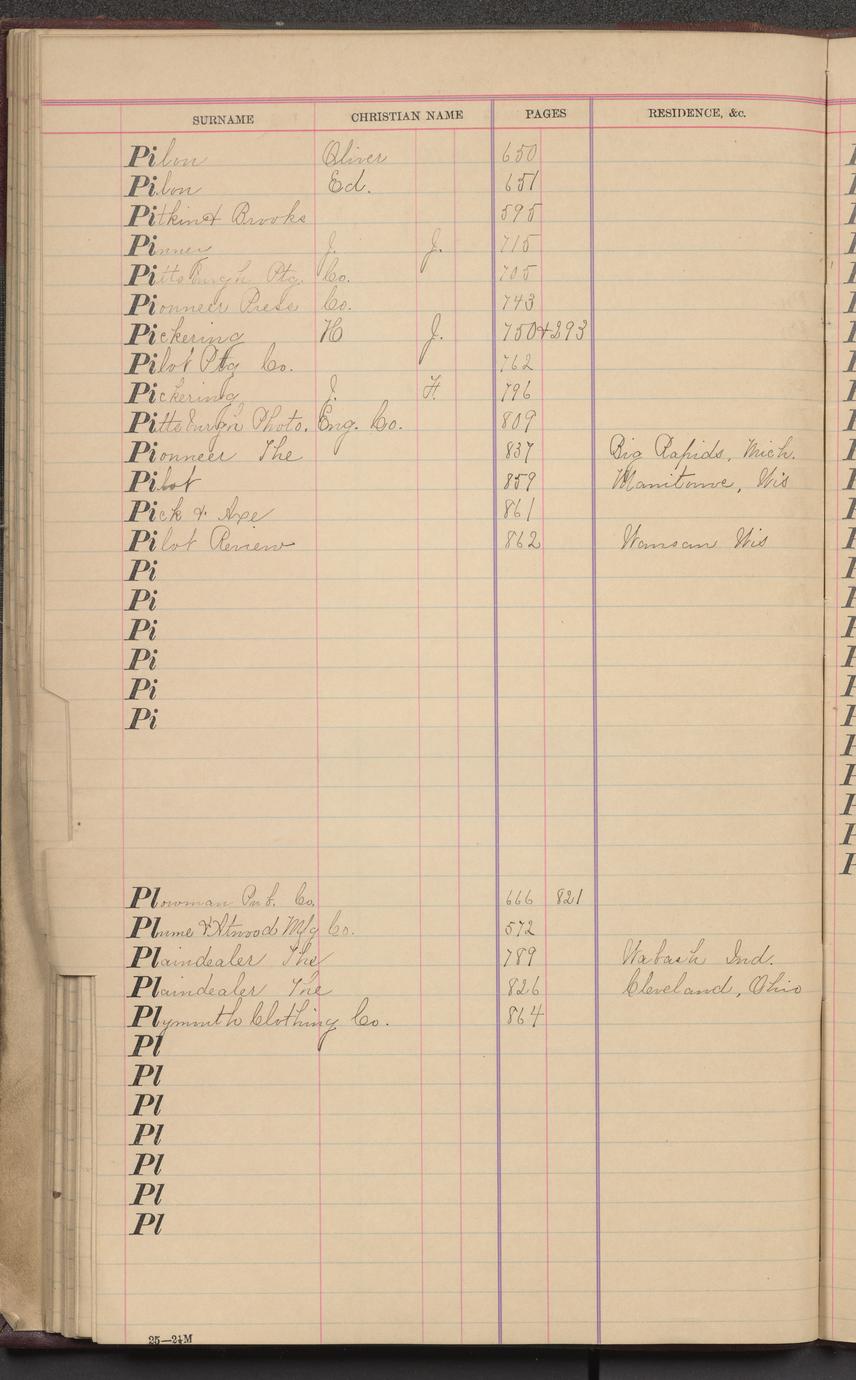 SURNAME CHRISTIAN NAME PAGES RESIDENCE, &c.
Pilon Oliver 650
Pilon Ed. 651
Pitkin & Brooks 595
Pinner J. J. 715
Pittsburgh Ptg. Co. 705
Pionneer Press Co. 743
Pickering H J. 750 & 293
Pilot Ptg Co. 762
Pickering J. F. 796
Pittsburgh Photo. Eng. Co. 809
Pionneer The 837 Big Rapids, Mich.
Pilot 859 Manitowc, Wis
Pick & Axe 861
Pilot Review 862 Wausau Wis
Pi
Pi
Pi
Pi
Pi
Pi
Plowman Pub. Co. 666 821
Plume & Atwood Mfg Co. 572
Plaindealer The 789 Wabash Ind.
Plaindealer The 826 Cleveland, Ohio
Plymouth Clothing Co. 864
Pl
Pl
Pl
Pl
Pl
Pl
Pl
25—2½M